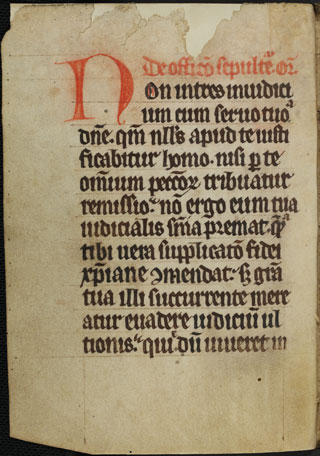 De offiꝯ sepultᵉ. Oꝛ̄.
Non intres in iudici
um cum seruo tuoᵃ
dn̄e. qm̄ nll's apud te iusti
ficabitur homo. nisi ꝑ te
om̄ium pecc̄oꝝ tribuatur
remissio. nō ergo eum tua
iudicialis sn̄ia premat. qᵃ
tibi uera supplicatō fidei
xp̄iane ꝯmendat. sꝫ gr̄a
tua illi succurrente mere
atur euadere iudiciū ul
tionis. qui dū uiueret in